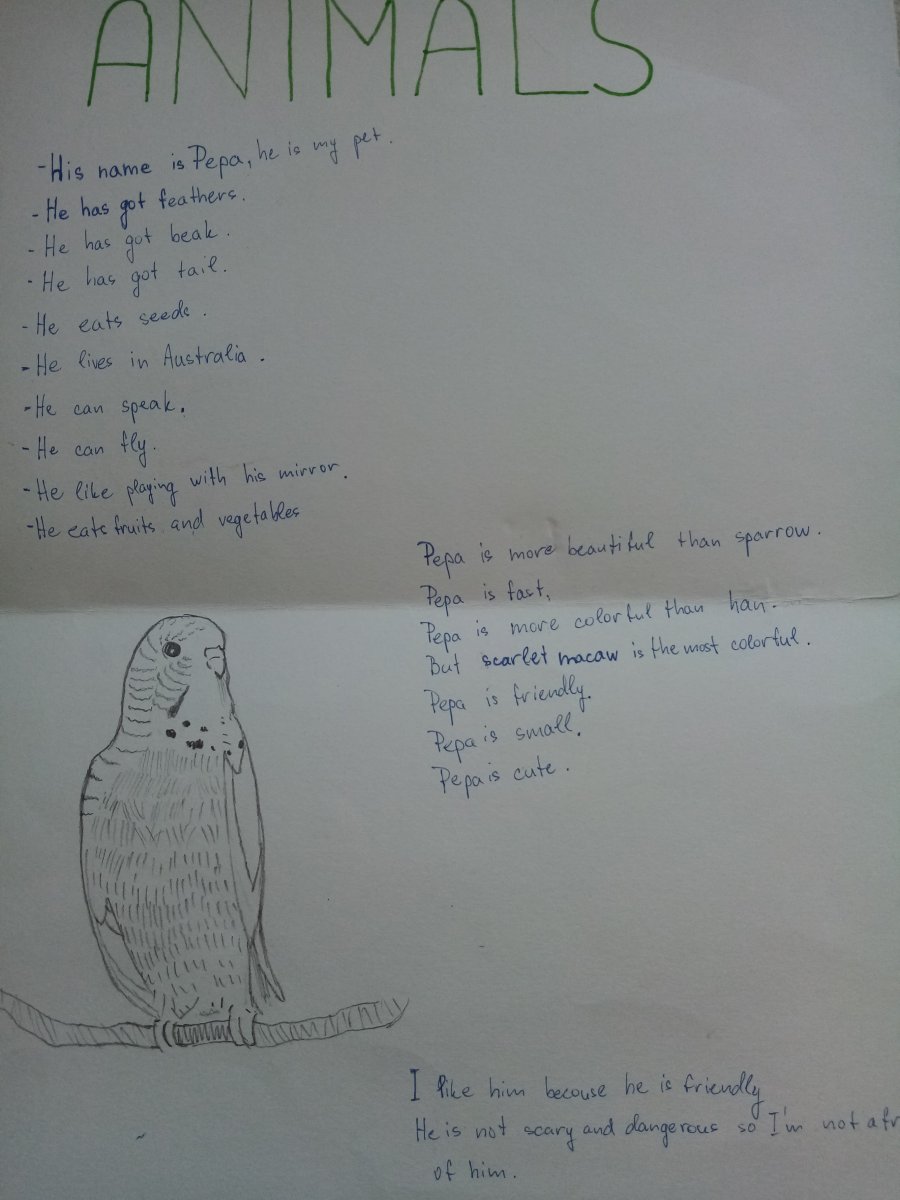 ANIMALS
-His name is Pepa, he is my pet.
-He has got feathers.
-He has got beak.
-He has got tail.
-He eats seeds.
-He lives in Australia.
-He can speak.
-He can fly.
-He like playing with his mirror.
-He eats fruits and vegetables
Pepa is more beautiful than sparrow.
Pepa is fast,
Pepa is more colorful than han.
But scarlet macaw is the most colorful.
Pepa is friendly.
Pepa is small.
Pepa is cute.
I like him becouse he is friendly
He is not scary and dangerous so I'm not afr
of him.